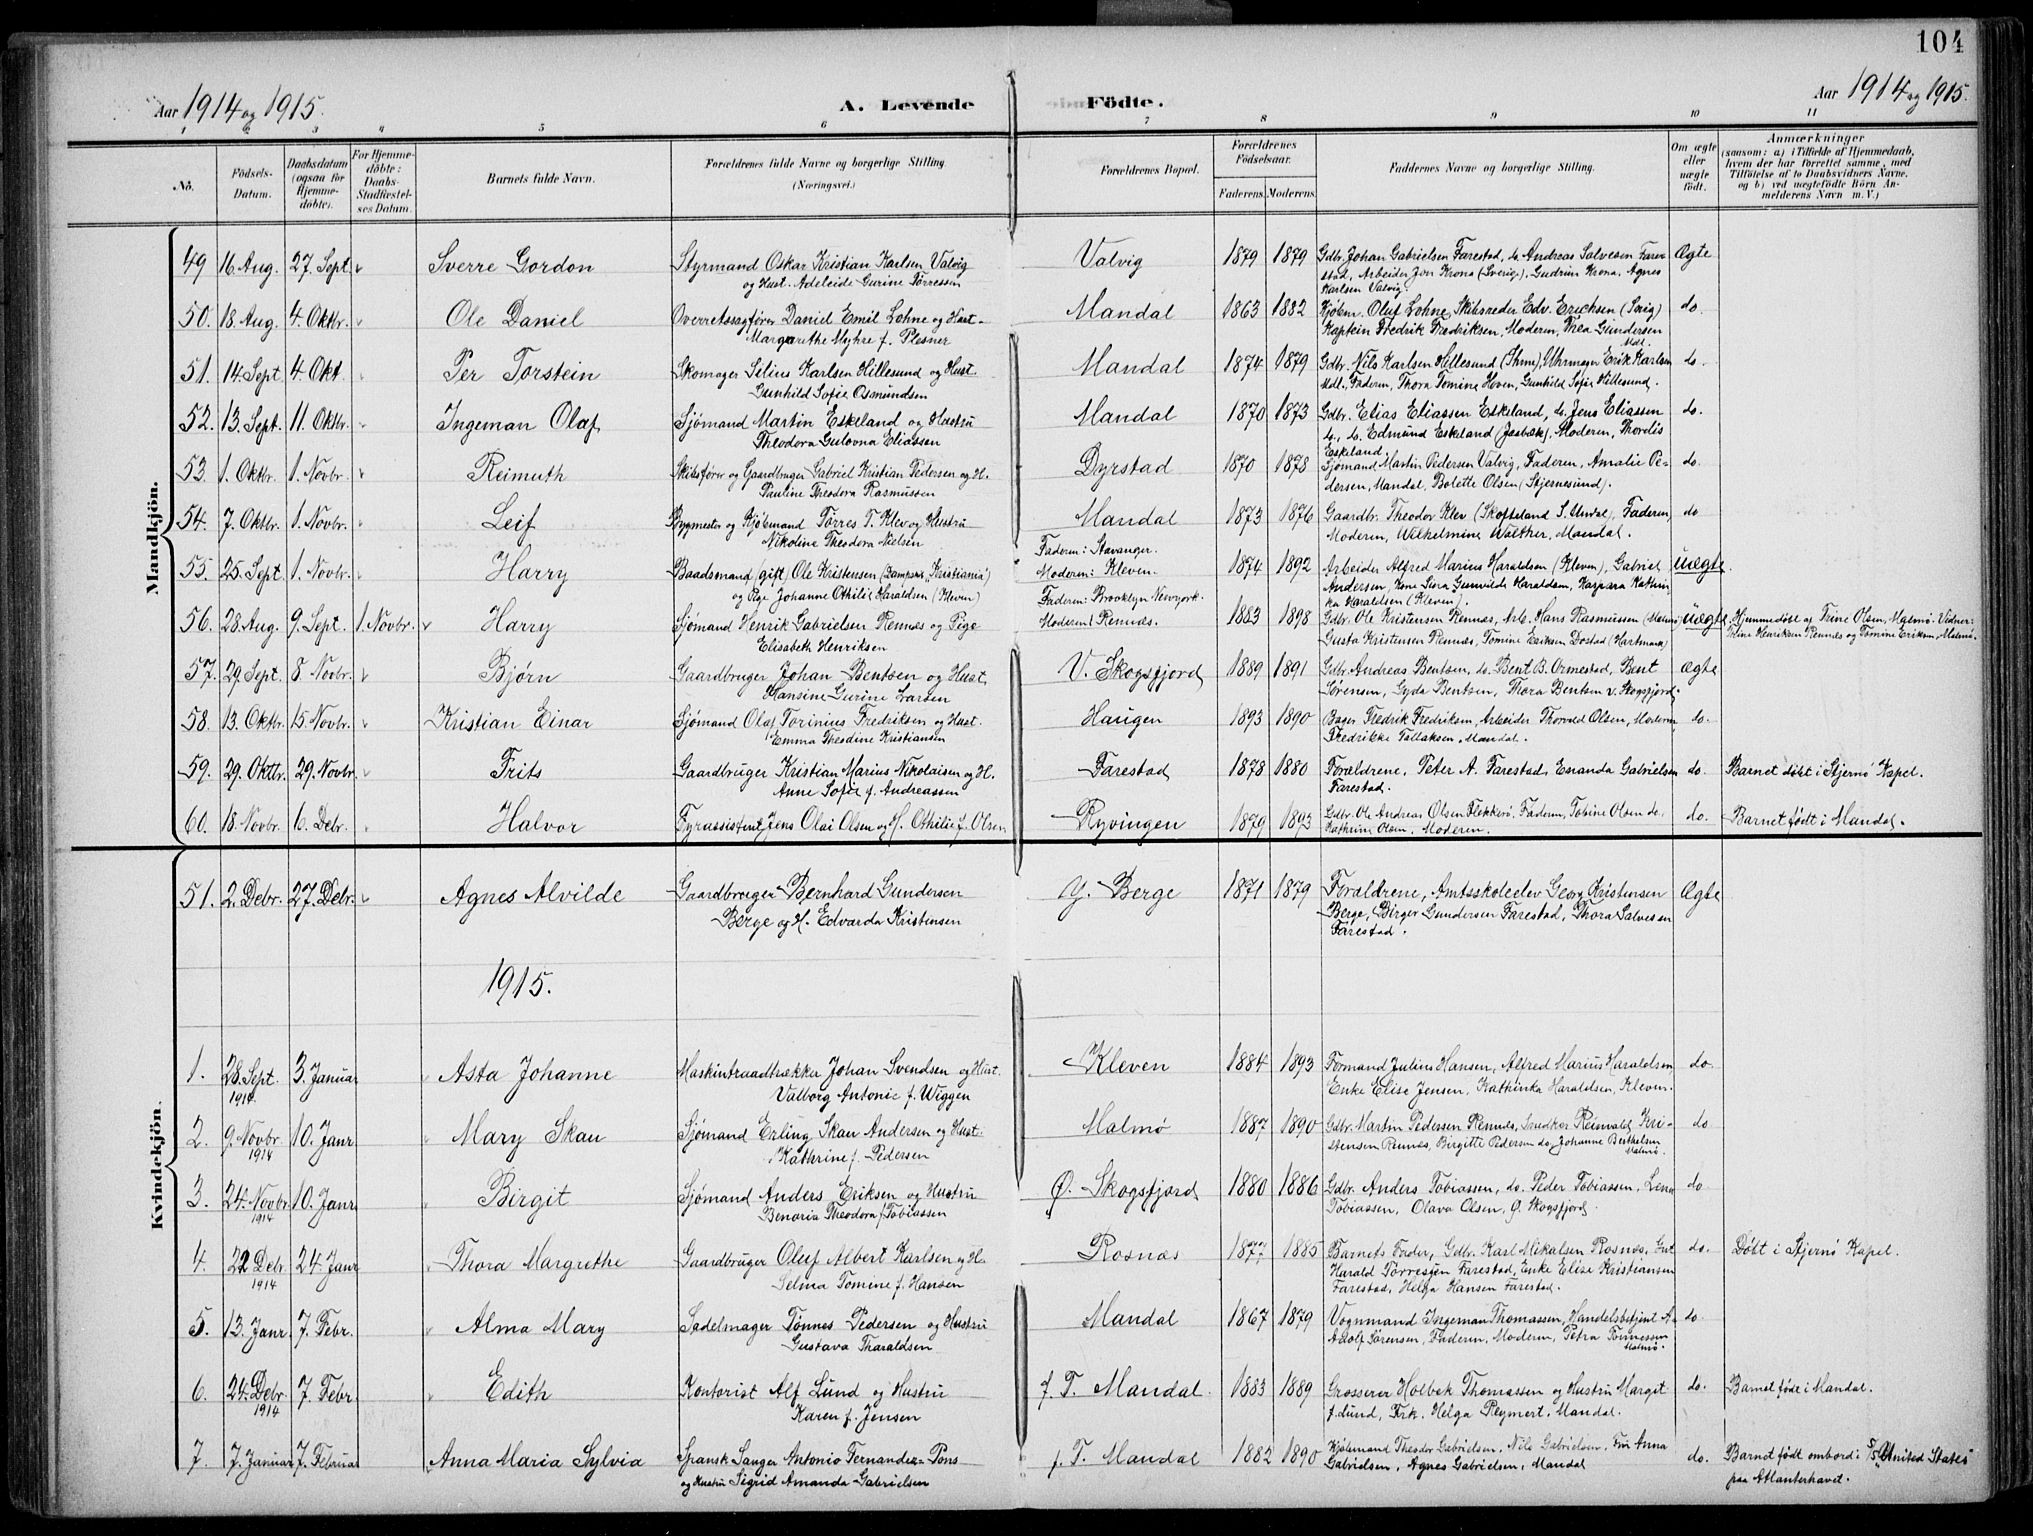 104
Aar 1914 og 1915.
A. Levende Födte.
Aar 1914 og 1915.
1 2 3 4 5 6 7 8 9 10 11
No.
Födsels-Datum.
Daabsdatum (ogsaa for Hjemme-döbte).
For Hjemme-döbte: Daabs-Stadfæstel-ses Datum.
Barnets fulde Navn.
Forældrenes fulde Navne og borgerlige Stilling.
(Næringsvei.)
Forældrenes Bopæl.
Forældrenes Födselsaar.
Faderens. Moderens.
Faddernes Navne og borgerlige Stilling.
Om ægte eller uægte födt.
Anmærkninger
(saasom: a) i Tilfælde af Hjemmedaab, hvem der har forrettet samme, med Tilföielse af to Daabsvidners Navne, og b) ved uægtefödte Börn An-melderens Navn m. V.)
Mandkjön.
49 16. Aug. 27. Sept. Sverre Gordon Styrmand Oskar Kristian Karlsen Valvig Valvig 1879 1879 Gdbr. Johan Gabrielsen Farestad, do. Andreas Salvesen Fare- Ægte
og Hust. Adeleide Gurine Torressen stad, Arbeider Jon Krona (Sverig), Gudrun Krona, Agnes
Karlsen Valvig.
50. 18. Aug. 4. Oktbr. Ole Daniel Overretssagfører Daniel Emil Lohne og Hust. Mandal 1863 1882 Kjøbm. Oluf Lohne, Skibsreder Edv. Erichsen do.
Margarethe Myhre f. Plesner Kaptein Fredrik Fredriksen, Moderen, Thea Gundersen
Mdl.
51. 14. Sept 4. Okt. Per Torstein Skomager Selius Karlsen Hillesund og Hust. Mandal 1874 1879 Gdbr. Nils Karlsen Hillesund Uhrmager Erik Karlsen do.
Gunhild Sofie Osmundsen Mdl., Faderen, Thora Tomine Hoven, Gunhild Sofie Hillesund.
52. 13. Sept. 11. Oktbr. Ingeman Olaf Sjømand Martin Eskeland og Hustru Mandal 1870 1873 Gdbr. Elias Eliassen Eskeland, do. Jens Eliassen do.
Theodora Gulovna Eliassen do., do. Edmund Eskeland (Jaabæk), Moderen, Thordis
Eskeland.
53. 1. Oktbr. 1. Novbr. Reimuth Skibsfører og Gaardbruger Gabriel Kristian Pedersen og H. Dyrstad 1870 1878 Sjømand Martin Pedersen Valvig, Faderen, Amalie Pe- do.
Pauline Theodora Rasmussen dersen, Mandal, Bolette Olsen (Stjernesund).
54. 7. Oktbr. 1. Novbr. Leif Bygmester og Kjøbmand Torres T. Klev og Hustru Mandal 1873 1876 Gaardbr. Theodor Klev (Skofteland S. Undal), Faderen, do
Nikoline Theodora Nielsen Moderen, Wilhelmine Walther, Mandal.
55. 25. Sept 1. Novbr. Harry Baadsmand (gift) Ole Kristensen Faderen: Stavanger. 1874 1892 Arbeider Alfred Marius Haraldsen (Kleven), Gabriel uægte.
og Pige Johanne Othilie Haraldsen (Kleven) Moderen: Kleven. Andersen, Kone Gunvilde Haraldsen, Kaspara Kathin-
ka Haraldsen (Kleven).
56. 28. Aug. 9. Sept. 1. Novbr. Harry Sjømand Henrik Gabrielsen Rennæs og Pige Faderen: Brooklyn Newyork. 1883 1898 Gdbr. Ole Kristensen Rennæs, Arb. Hans Rasmussen (Malmø) uægte. Hjemmedøbt og Trine Olsen, Malmø. Vidner:
Elisabeth Henriksen Moderen: Rennæs. Gusta Kristensen Rennæs, Tomine Eriksen Dostad (Hartmark) Trine Henriksen Rennæs og Tomine Eriksen, Malmø.
57. 29. Sept. 8. Novbr. Bjørn Gaardbruger Johan Bentsen og Hust. V. Skogsfjord 1889 1891 Gdbr. Andreas Bentsen, do. Bent B. Ormestad, Bent Ægte
Hansine Gurine Larsen Sørensen, Gyda Bentsen, Thora Bentsen V. Skogsfjord.
58. 13. Oktbr. 15. Novbr. Kristian Einar Sjømand Olaf Torinius Fredriksen og Hust. Haugen 1893 1890 Bager Fredrik Fredriksen, Arbeider Thorvald Olsen, Moderen, do.
Emma Theodine Kristiansen Fredrikke Tallaksen, Mandal.
59. 29. Oktbr. 29. Novbr. Frits Gaardbruger Kristian Marius Nikolaisen og H. Farestad 1878 1880 Forældrene, Peter A. Farestad, Esranda Gabrielsen do. Barnet døbt i Stjernø Kapel.
Anne Sofie f. Andreassen Farestad.
60. 18. Novbr. 6. Debr. Halvor Fyrassistent Jens Olai Olsen og H. Othilie f. Olsen Ryvingen 1879 1893 Gdbr. Ole Andreas Olsen Flekkerø, Faderen, Tobine Olsen do. do. Barnet født i Mandal.
Kathrine Olsen, Moderen.
Kvindekjön.
51. 2. Debr. 27. Debr. Agnes Alvilde Gaardbruger Bernhard Gundersen Y. Berge 1871 1879 Forældrene, Amtsskoleelev Georg Kristensen Ægte
Berge og H. Edvarda Kristensen Berge, Birger Gundersen Farestad, Thora Salvesen
Farestad.
1915.
1. 28. Sept. 3. Januar Asta Johanne Maskintraadtrækker Johan Svendsen og Hust. Kleven 1884 1893 Formand Julius Hansen, Alfred Marius Haraldsen do.
1914 Valborg Antonie f. Wiggen Enke Elise Jensen, Kathinka Haraldsen, Kleven.
2. 9. Novbr. 10. Janr Mary Skau Sjømand Erling Skau Andersen og Hust. Malmø 1887 1890 Gdbr. Martin Pedersen Rennæs, Snedker Reinvald Kri- do
1914 Kathrine f. Pedersen stensen Rennæs, Birgitte Pedersen do, Johanne Berthelsen
Malmø.
3. 24. Novbr 10. Janr Birgit Sjømand Anders Eriksen og Hustru Ø. Skogsfjord 1880 1886 Gdbr. Anders Tobiassen, do. Peder Tobiassen, Lena do.
1914 Benaria Theodora f. Tobiassen Tobiassen, Olava Olsen, Ø. Skogsfjord.
4. 22 Debr. 24. Janr Thora Margrethe Gaardbruger Oluf Albert Karlsen og H. Rosnæs 1877 1885 Barnets Fader, Gdbr. Karl Mikalsen Rosnæs, Gut do. Døbt i Stjernø Kapel.
1914 Selma Tomine f. Hansen Harald Torresen Farestad, Enke Elise Kristiansen
Farestad, Helga Hansen Farestad.
5. 13. Janr. 7. Febr. Alma Mary Sadelmager Tønnes Pedersen og Hustru Mandal 1867 1879 Vognmand Ingeman Thomassen, Handelsbetjent A- do
Gustava Tharaldsen Adolf Sørensen, Faderen, Moderen, Petra Tønnessen
Malmø.
6. 24. Debr. 7. Febr. Edith Kontorist Alf Lund og Hustru f. T. Mandal. 1883 1889 Grosserer Holbek Thomassen og Hustru Margit do. Barnet føde i Mandal.
1914 Karen f. Jensen f. Lund, Frk. Helga Reymert, Mandal.
7. 7. Januar 7. Februar Anna Maria Sylvia Spansk Sanger Antonio Fernandez=Pons f. T. Mandal 1882 1890 Kjøbmand Theodor Gabrielsen, Nils Gabrielsen, Fru Anna do. Barnet født ombord i S/S "United States"
og Hustru Sigrid Amanda Gabrielsen Gabrielsen, Agnes Gabrielsen, Mandal paa Atlanterhavet.